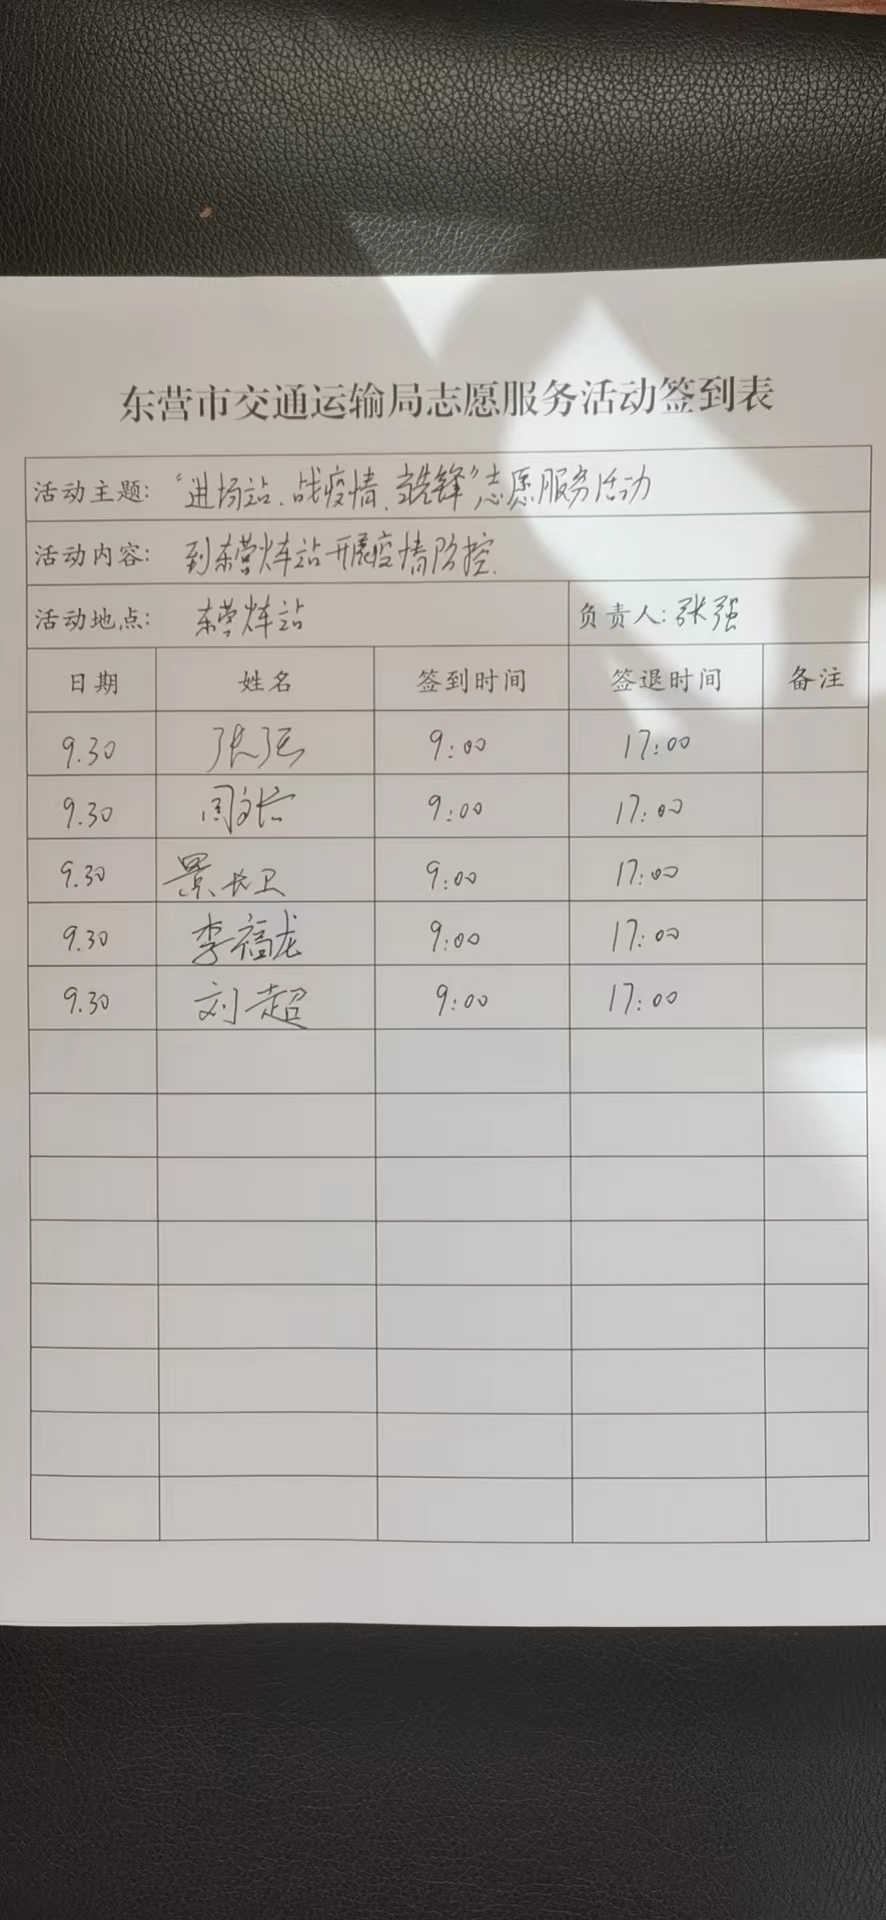 东营市交通运输局志愿服务活动签到表
活动主题: "进场站、战疫情、当先锋"志愿服务活动
活动内容: 到东营火车站开展疫情防控.
活动地点: 东营火车站 负责人: 张强
日期 姓名 签到时间 签退时间 备注
9.30 张强 9:00 17:00
9.30 周 9:00 17:00
9.30 景长卫 9:00 17:00
9.30 李福龙 9:00 17:00
9.30 刘超 9:00 17:00